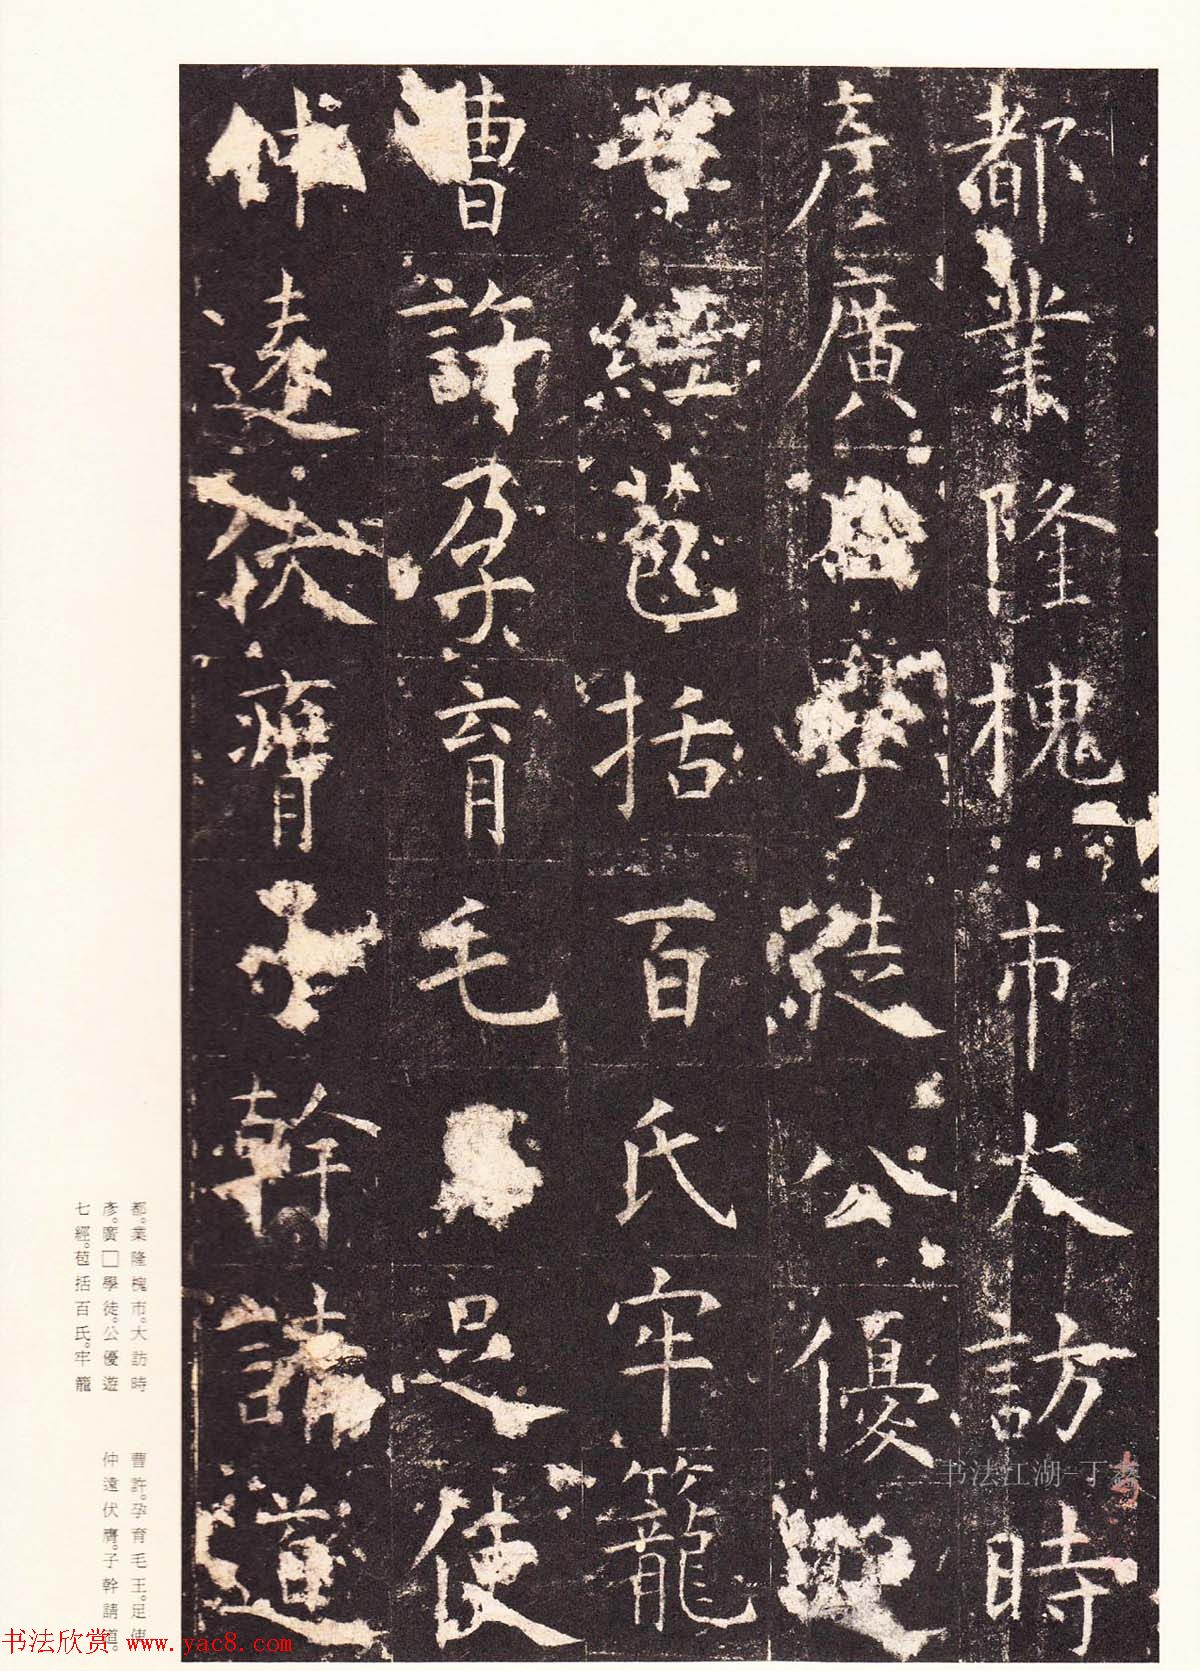 都業隆槐市大訪時
彦廣學徒公優
業經苞括百氏牢籠
曹許孕育毛足使
仲遠伏膺子幹請道
都。業隆槐市。大訪時
彥。廣□學徒。公優遊
七經。苞括百氏。牢籠
曹許。孕育毛王。足使
仲遠伏膺。子幹請道。
书法江湖-丁
书法欣赏 www.yac8.com